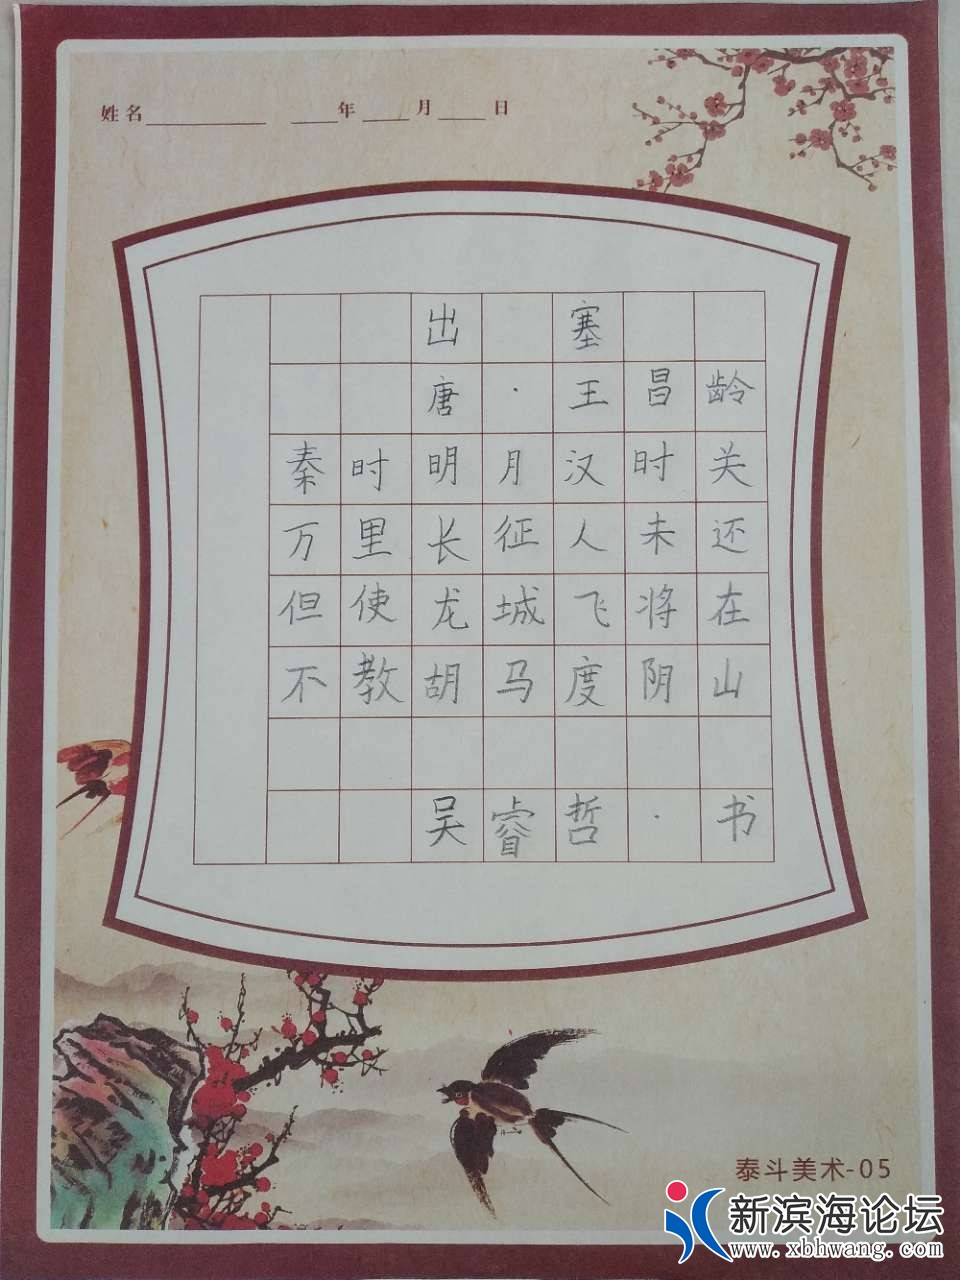 姓名 年 月 日
出 塞
唐 · 王昌龄
秦时明月汉时关
万里长征人未还
但使龙城飞将在
不教胡马度阴山
吴睿哲 · 书
泰斗美术-05
新滨海论坛
www.xbhwang.com